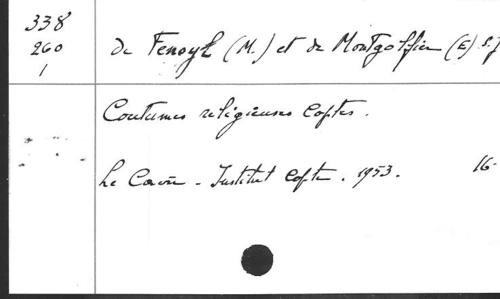 338
260
1
de Fenoyl (M.) et de Montgolfier (E) s.j
Coutumes religieuses coptes.
Le Caire - Institut Copte. 1953. 16-